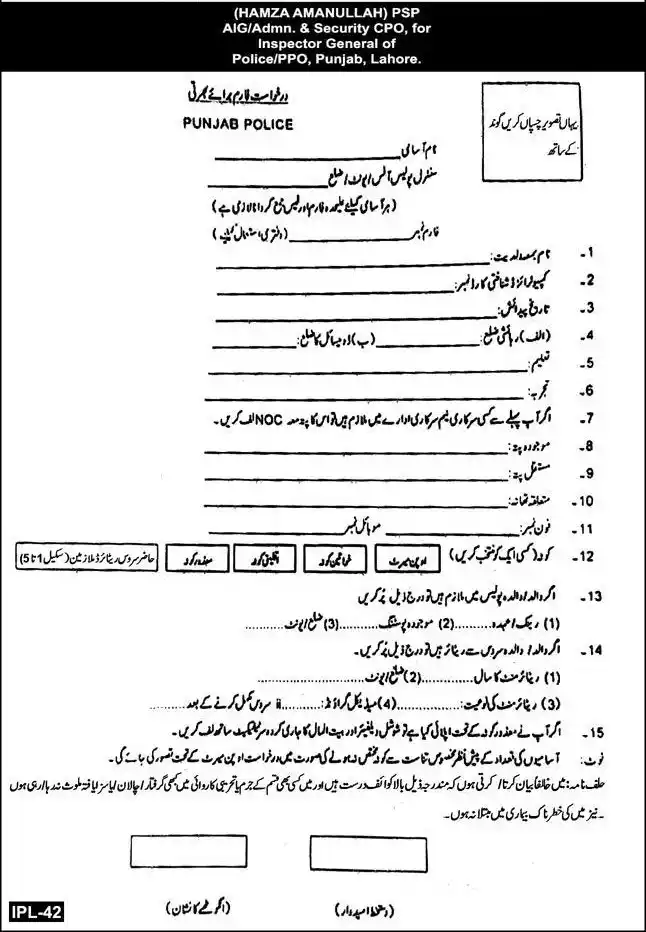 (HAMZA AMANULLAH) PSP
AIG/Admn. & Security CPO, for
Inspector General of
Police/PPO, Punjab, Lahore.
درخواست فارم برائے بھرتی
PUNJAB POLICE
یہاں تصویر چسپاں کریں گوند
کے ساتھ
نام آسامی
سنٹرل پولیس آفس/یونٹ/ضلع
(ہر آسامی کیلئے علیحدہ فارم اور فیس جمع کروانا لازمی ہے)
فارم نمبر (دفتری استعمال کیلئے)
1- نام بمعہ ولدیت:
2- کمپیوٹرائزڈ شناختی کارڈ نمبر:
3- تاریخ پیدائش:
4- (الف) رہائشی ضلع: (ب) ڈومیسائل کا ضلع:
5- تعلیم:
6- تجربہ:
7- اگر آپ پہلے سے کسی سرکاری/نیم سرکاری ادارے میں ملازم ہیں تو اس کا پتہ معہ NOC لف کریں۔
8- موجودہ پتہ:
9- مستقل پتہ:
10- متعلقہ تھانہ:
11- فون نمبر: موبائل نمبر
12- کوٹہ (کسی ایک کو منتخب کریں) اوپن میرٹ خواتین کوٹہ اقلیتی کوٹہ معذور کوٹہ حاضر سروس ریٹائرڈ ملازمین (سکیل 1 تا 5)
13- اگر والد/والدہ پولیس میں ملازم ہیں تو درج ذیل پُر کریں
(1) رینک/عہدہ..........(2) موجودہ پوسٹنگ..........(3) ضلع/یونٹ..........
14- اگر والد/والدہ سروس سے ریٹائر ہیں تو درج ذیل پُر کریں۔
(1) ریٹائرمنٹ کا سال ..........(2) ضلع/یونٹ..........
(3) ریٹائرمنٹ کی نوعیت:..........(4) میڈیکل گراؤنڈ:..........ii سروس مکمل کرنے کے بعد ..........
15- اگر آپ نے معذور کوٹہ کے تحت اپلائی کیا ہے تو سوشل ویلفیئر اور بیت المال کا جاری کردہ سرٹیفکیٹ ساتھ لف کریں۔
نوٹ: آسامیوں کی تعداد کے پیش نظر مخصوص تناسب سے کوٹہ مختص نہ ہونے کی صورت میں درخواست اوپن میرٹ کے تحت تصور کی جائے گی۔
حلف نامہ: میں حلفاً بیان کرتا/کرتی ہوں کہ مندرجہ ذیل بالا کوائف درست ہیں اور میں کسی بھی قسم کے جرم یا تخریبی کاروائی میں کبھی گرفتار/چالان یا سزا یافتہ ملوث نہ رہا/رہی ہوں
۔ نیز میں کسی خطرناک بیماری میں مبتلا نہ ہوں۔
(دستخط امیدوار) (انگوٹھے کا نشان)
IPL-42